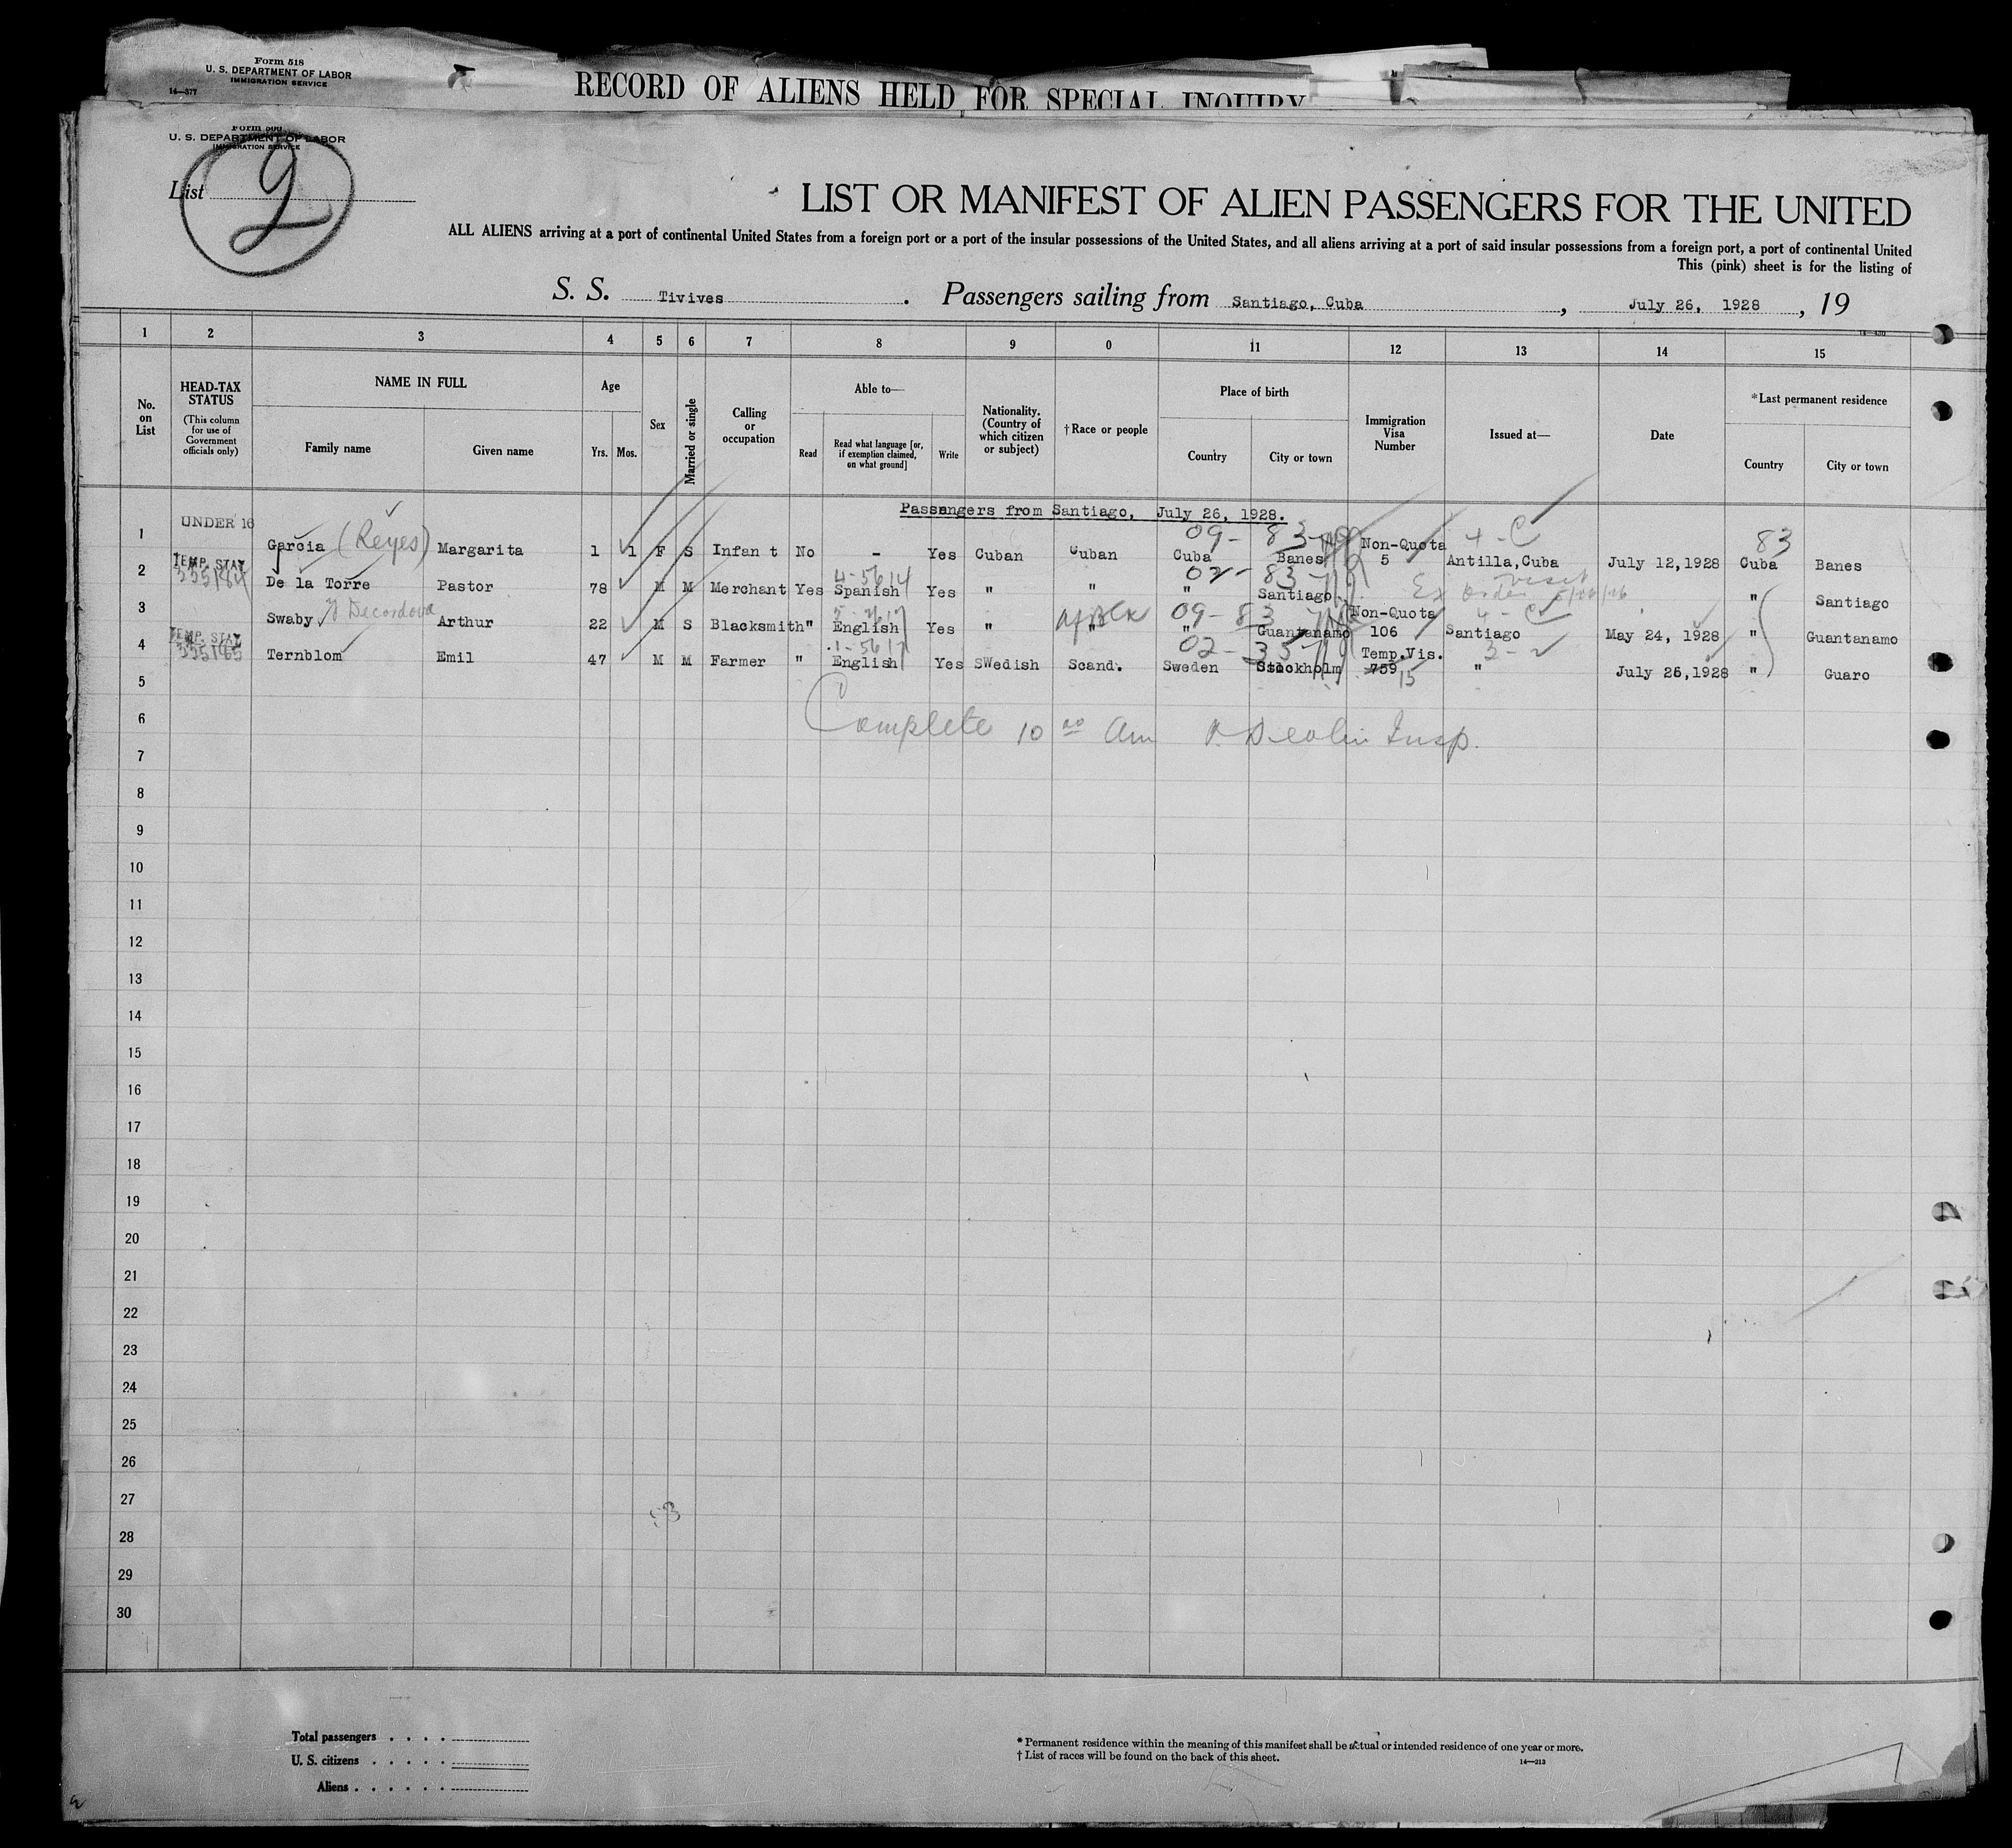 Form 518
U. S. DEPARTMENT OF LABOR
IMMIGRATION SERVICE
14—377
RECORD OF ALIENS HELD FOR SPECIAL INQUIRY
Form 500
U. S. DEPARTMENT OF LABOR
IMMIGRATION SERVICE
List 2
LIST OR MANIFEST OF ALIEN PASSENGERS FOR THE UNITED
ALL ALIENS arriving at a port of continental United States from a foreign port or a port of the insular possessions of the United States, and all aliens arriving at a port of said insular possessions from a foreign port, a port of continental United
This (pink) sheet is for the listing of
S. S. Tivives. Passengers sailing from Santiago, Cuba, July 26, 1928, 19
1 2 3 4 5 6 7 8 9 0 11 12 13 14 15
No. on List
HEAD-TAX STATUS
(This column for use of Government officials only)
NAME IN FULL
Family name Given name
Age
Yrs. Mos.
Sex
Married or single
Calling or occupation
Able to—
Read
Read what language [or, if exemption claimed, on what ground]
Write
Nationality. (Country of which citizen or subject)
†Race or people
Place of birth
Country City or town
Immigration Visa Number
Issued at—
Date
*Last permanent residence
Country City or town
Passengers from Santiago, July 26, 1928.
1 UNDER 16 Garcia (Reyes) Margarita 1 1 F S Infan t No - Yes Cuban Cuban 09- 83- Cuba Banes Non-Quota 5 4-C Antilla,Cuba July 12,1928 83 Cuba Banes
2 TEMP. STAY 355164 De la Torre Pastor 78 M M Merchant Yes 4-5614 Spanish Yes " " 02- 83- " Santiago Ex Order visit " Santiago
3 Swaby y Decordova Arthur 22 M S Blacksmith " English Yes " " 09-83 " Guantanamo Non-Quota 106 4-C Santiago May 24, 1928 " Guantanamo
4 TEMP. STAY 355165 Ternblom Emil 47 M M Farmer " 1-5617 English Yes SWedish Scand. 02-35- Sweden Stockholm Temp.Vis. 759 15 3-2 " July 26,1928 " Guaro
5
6 Complete 10 00 Am Insp.
7
8
9
10
11
12
13
14
15
16
17
18
19
20
21
22
23
24
25
26
27
28
29
30
Total passengers . . . .
U. S. citizens . . . . .
Aliens . . . . . .
* Permanent residence within the meaning of this manifest shall be actual or intended residence of one year or more.
† List of races will be found on the back of this sheet.
14—213